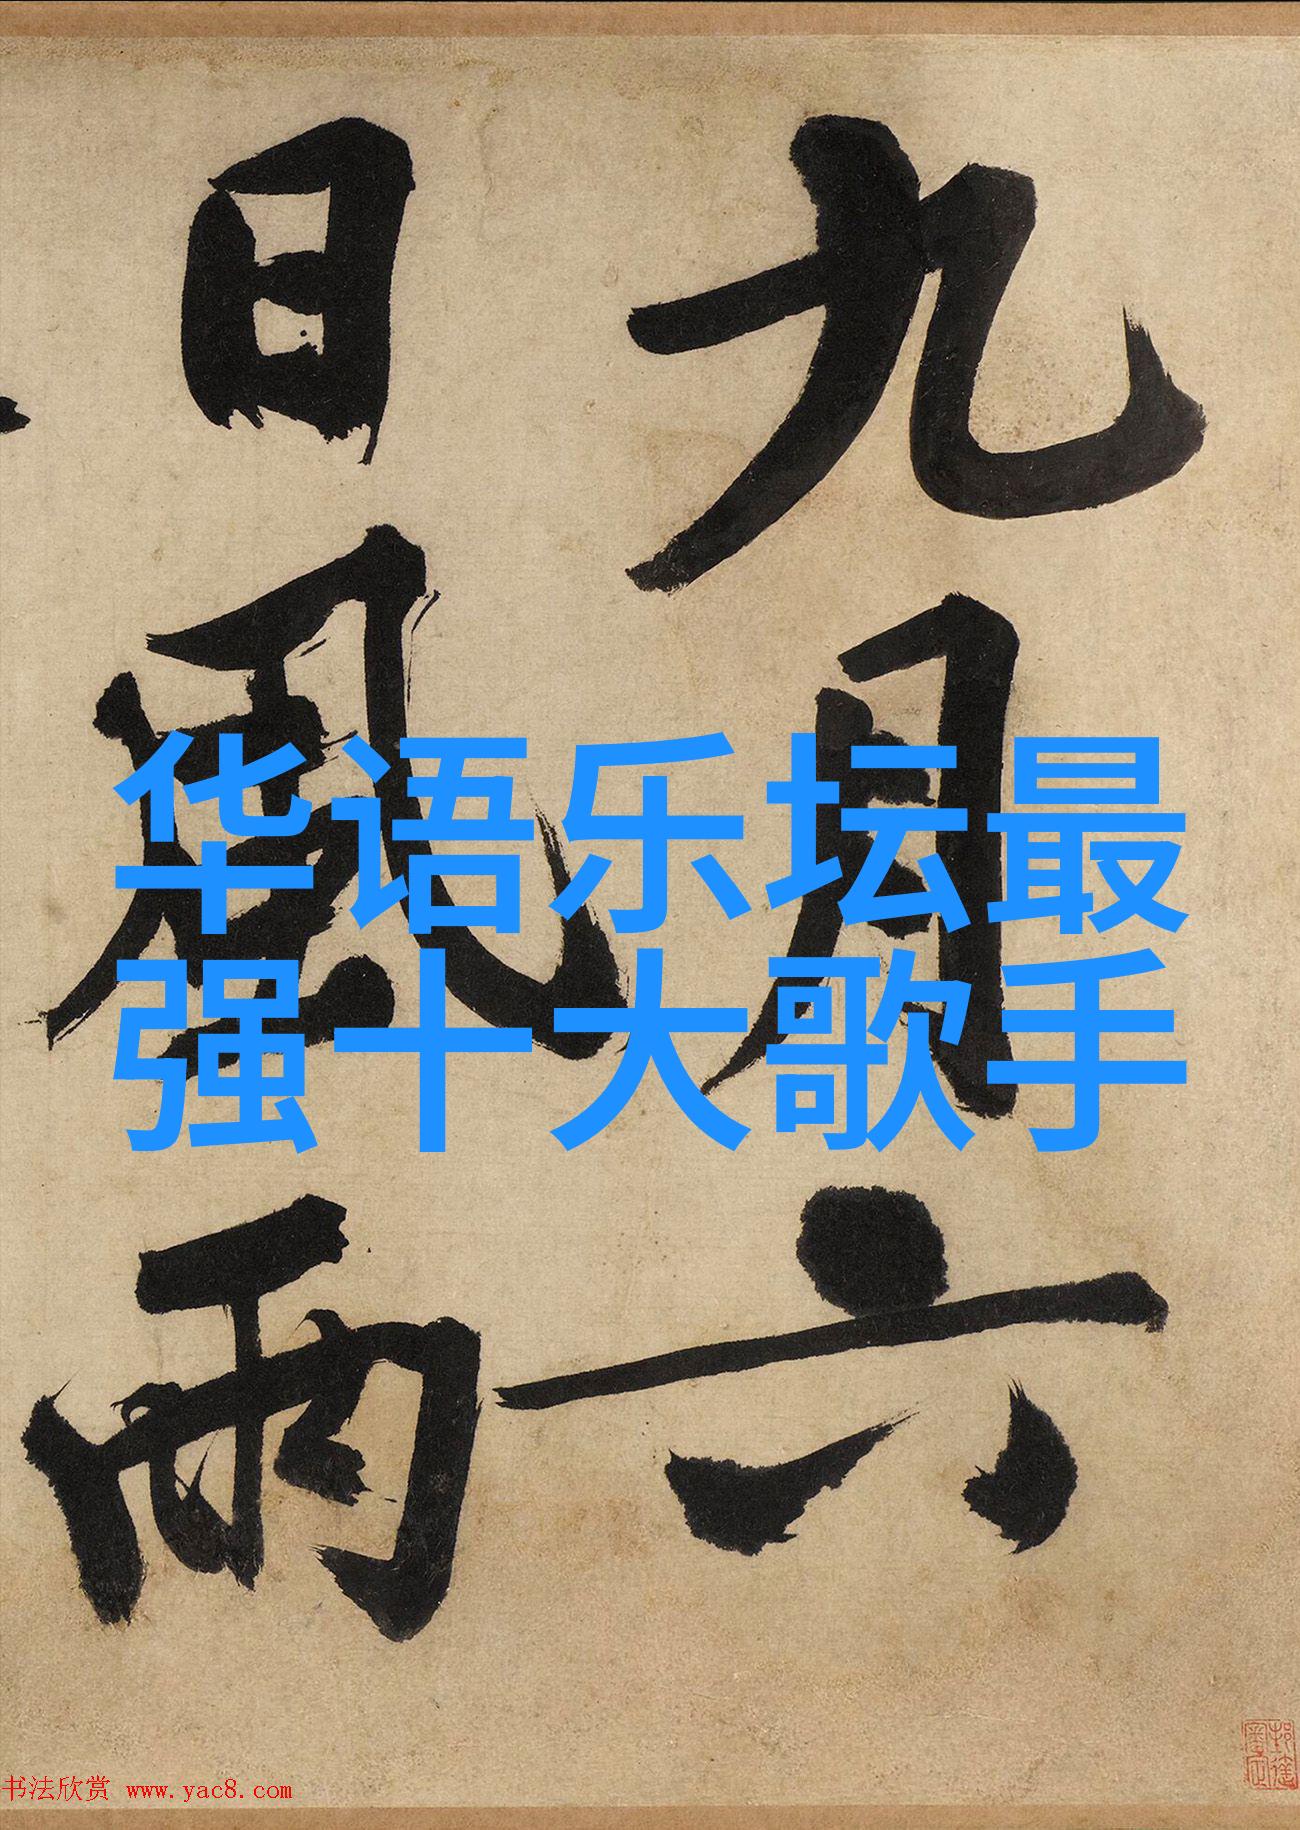 九月六
日風雨
华语乐坛最
强十大歌手
书法欣赏 www.yac8.com